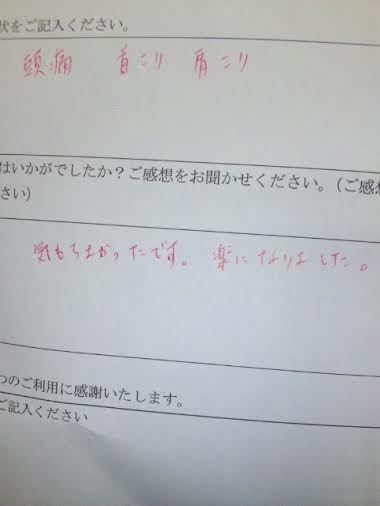 状をご記入ください。
頭痛 首こり 肩こり
はいかがでしたか？ご感想をお聞かせください。（ご感想
さい）
気もちよかったです。 楽になりました。
つのご利用に感謝いたします。
ご記入ください